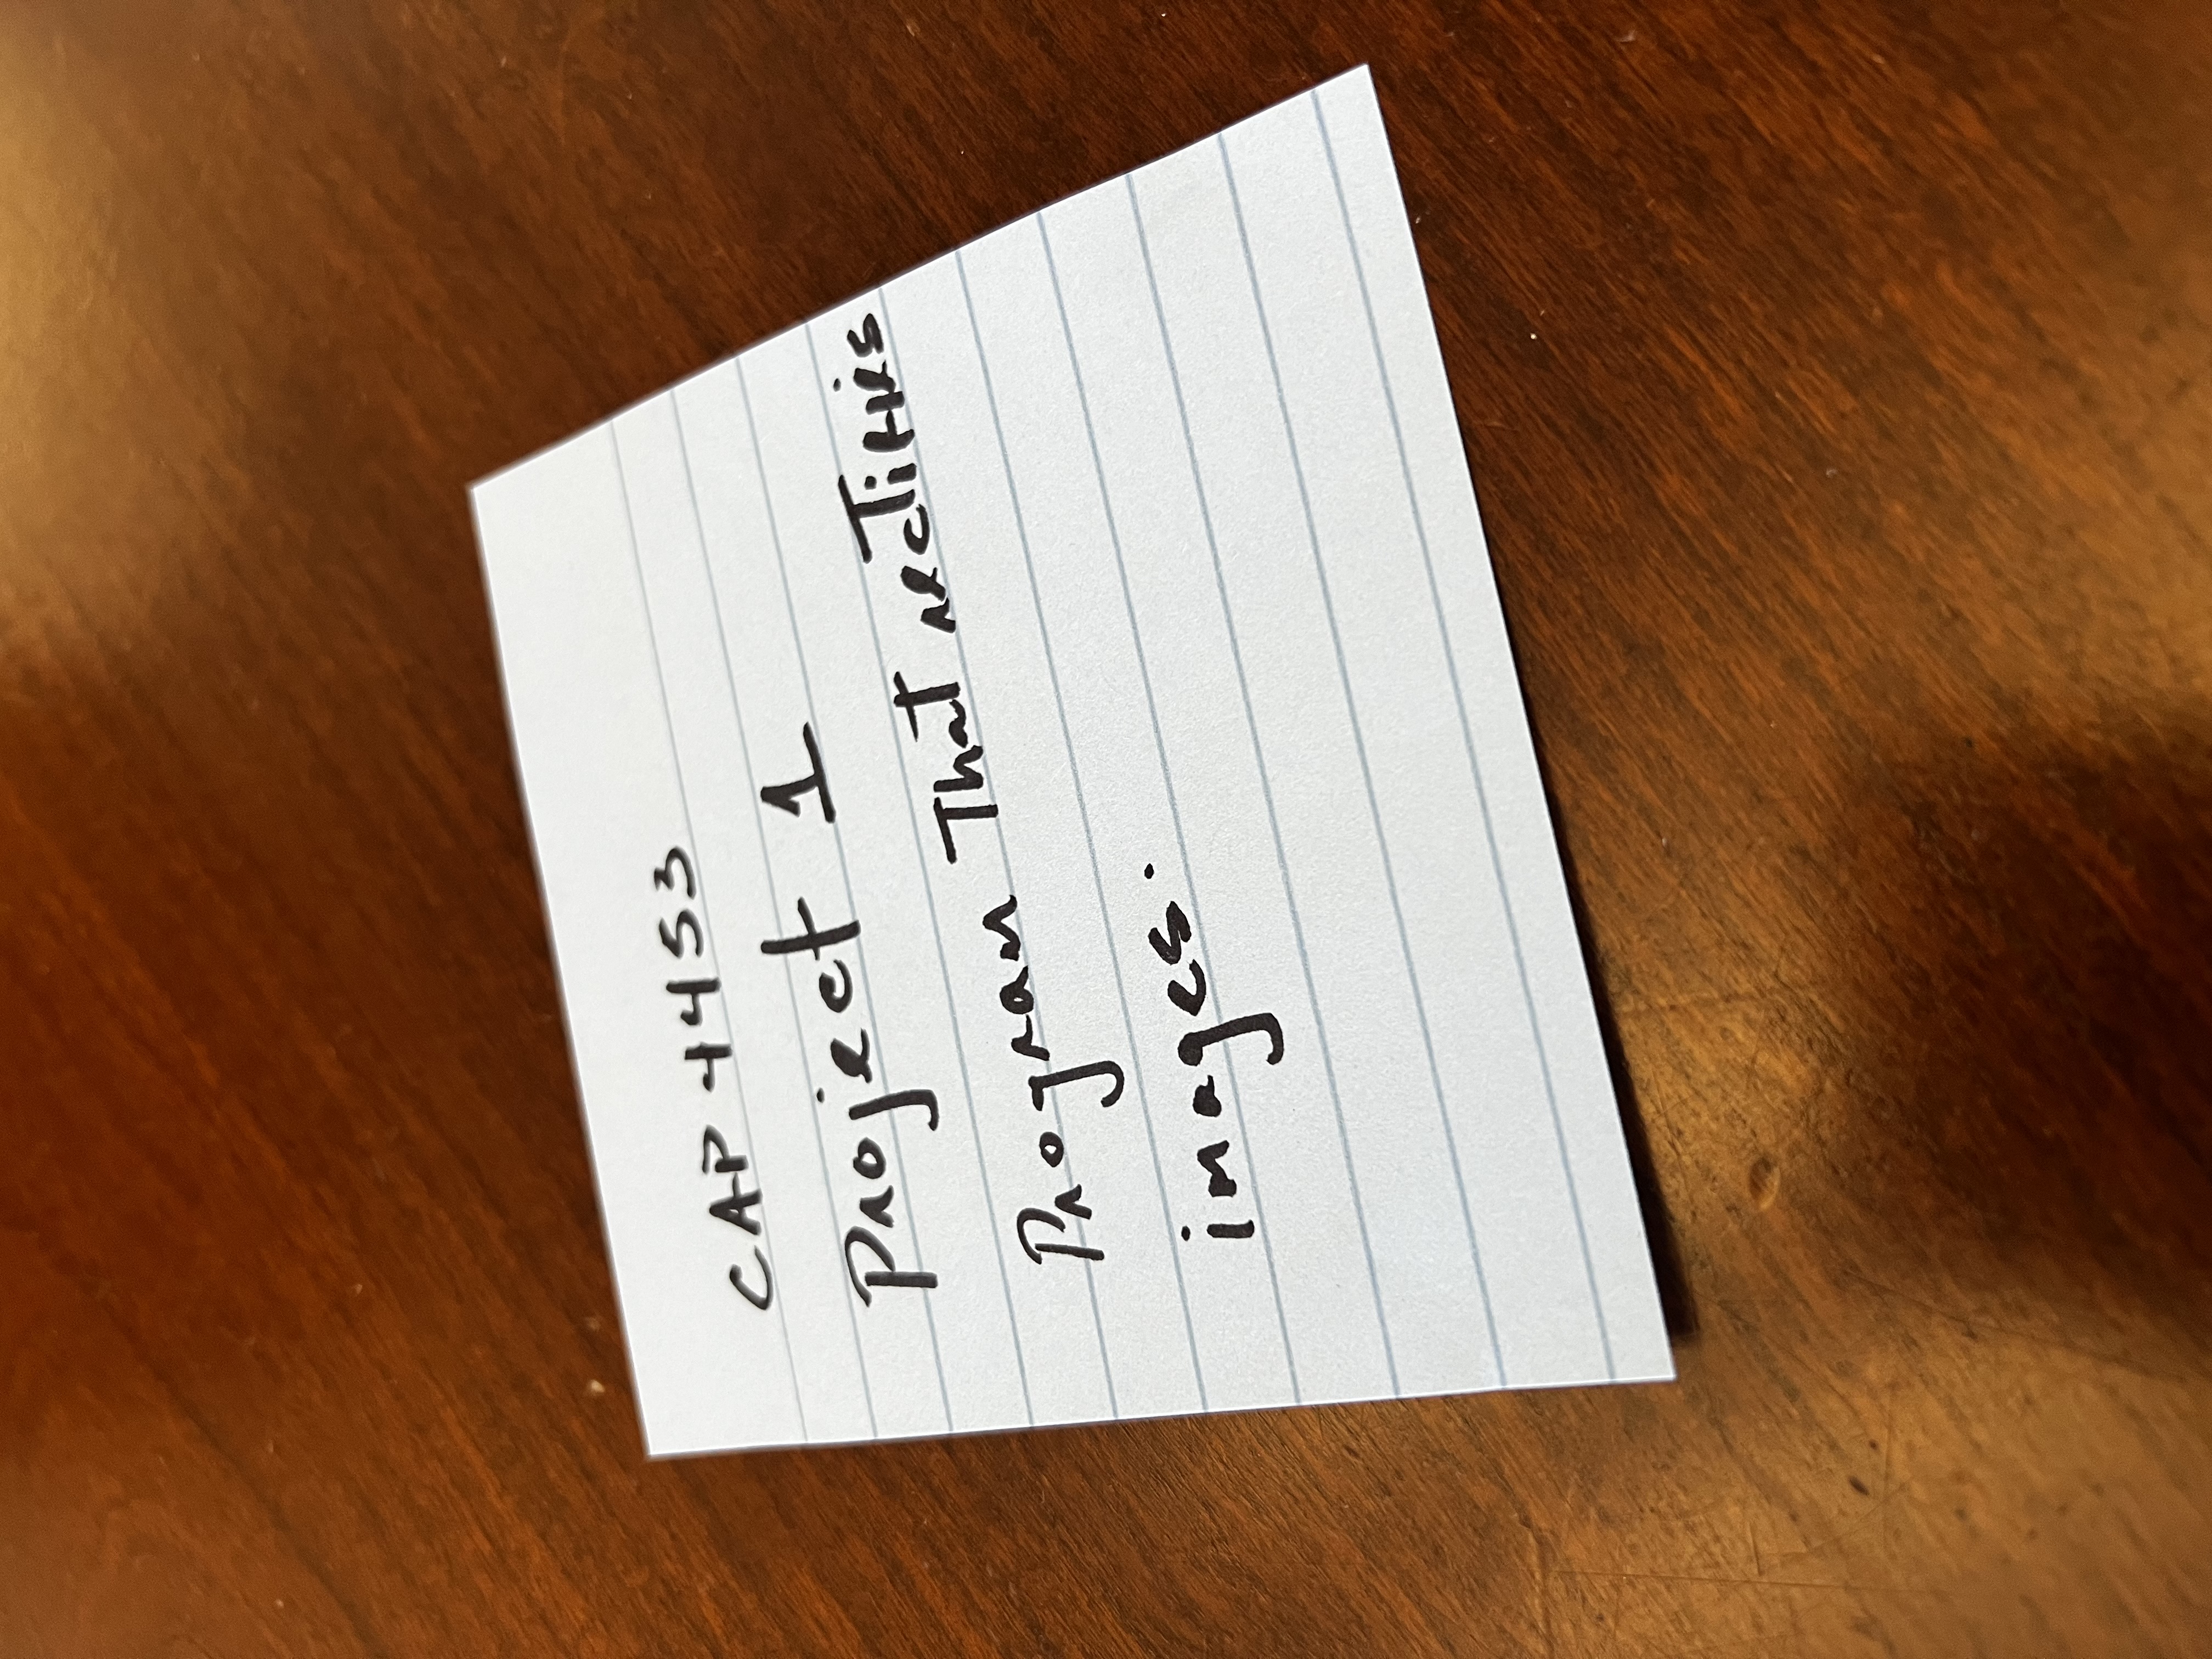 CAP 4453
Project 1
Program That rectifies
images.